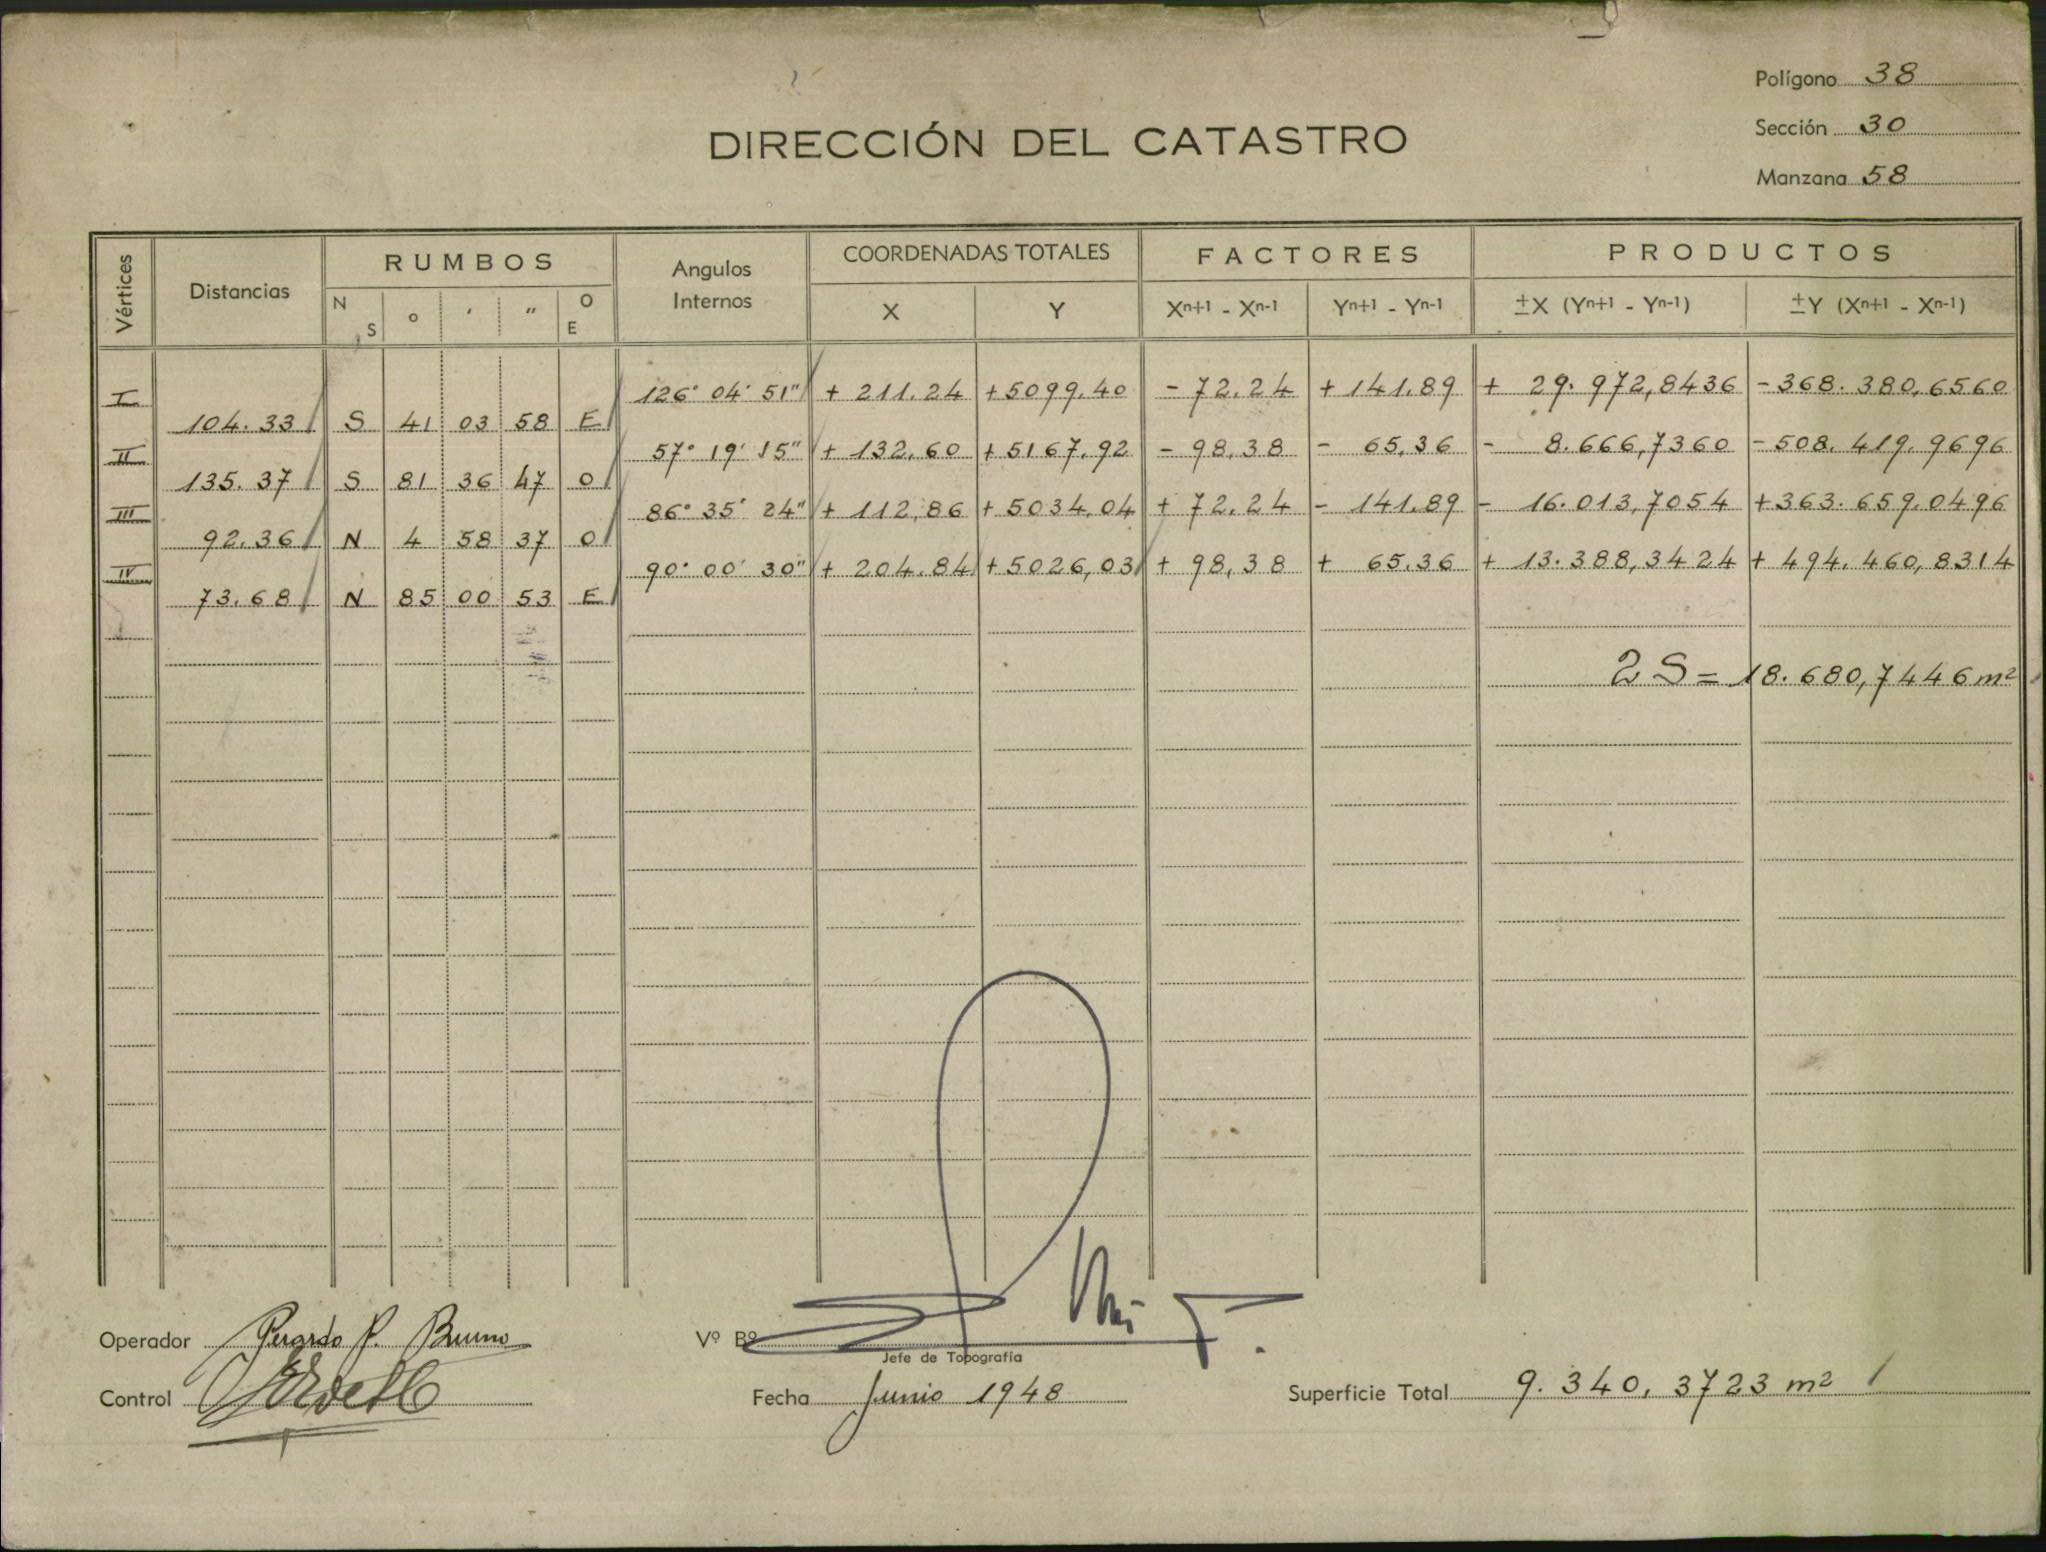 Polígono 38
Sección 30
DIRECCIÓN DEL CATASTRO
Manzana 58
Vértices Distancias RUMBOS Angulos Internos COORDENADAS TOTALES FACTORES PRODUCTOS
N S o ' " O E X Y Xn+1 - Xn-1 Yn+1 - Yn-1 ±X (Yn+1 - Yn-1) ±Y (Xn+1 - Xn-1)
I 126° 04' 51" + 211.24 +5099.40 - 72.24 + 141.89 + 29.972,8436 -368.380,6560
104.33 S 41 03 58 E
II 57° 19' 15" + 132,60 +5167,92 - 98,38 - 65,36 - 8.666,7360 -508.419,9696
135.37 S 81 36 47 O
III 86° 35' 24" + 112,86 + 5034,04 + 72.24 - 141.89 - 16.013,7054 +363.659,0496
92.36 N 4 58 37 O
IV 90° 00' 30" + 204.84 +5026,03 + 98,38 + 65.36 + 13.388,3424 + 494.460,8314
73.68 N 85 00 53 E
2 S = 18.680,7446 m²
Operador P. Bruno Vº Bº
Jefe de Topografía
Control Fecha Junio 1948 Superficie Total 9.340,3723 m²